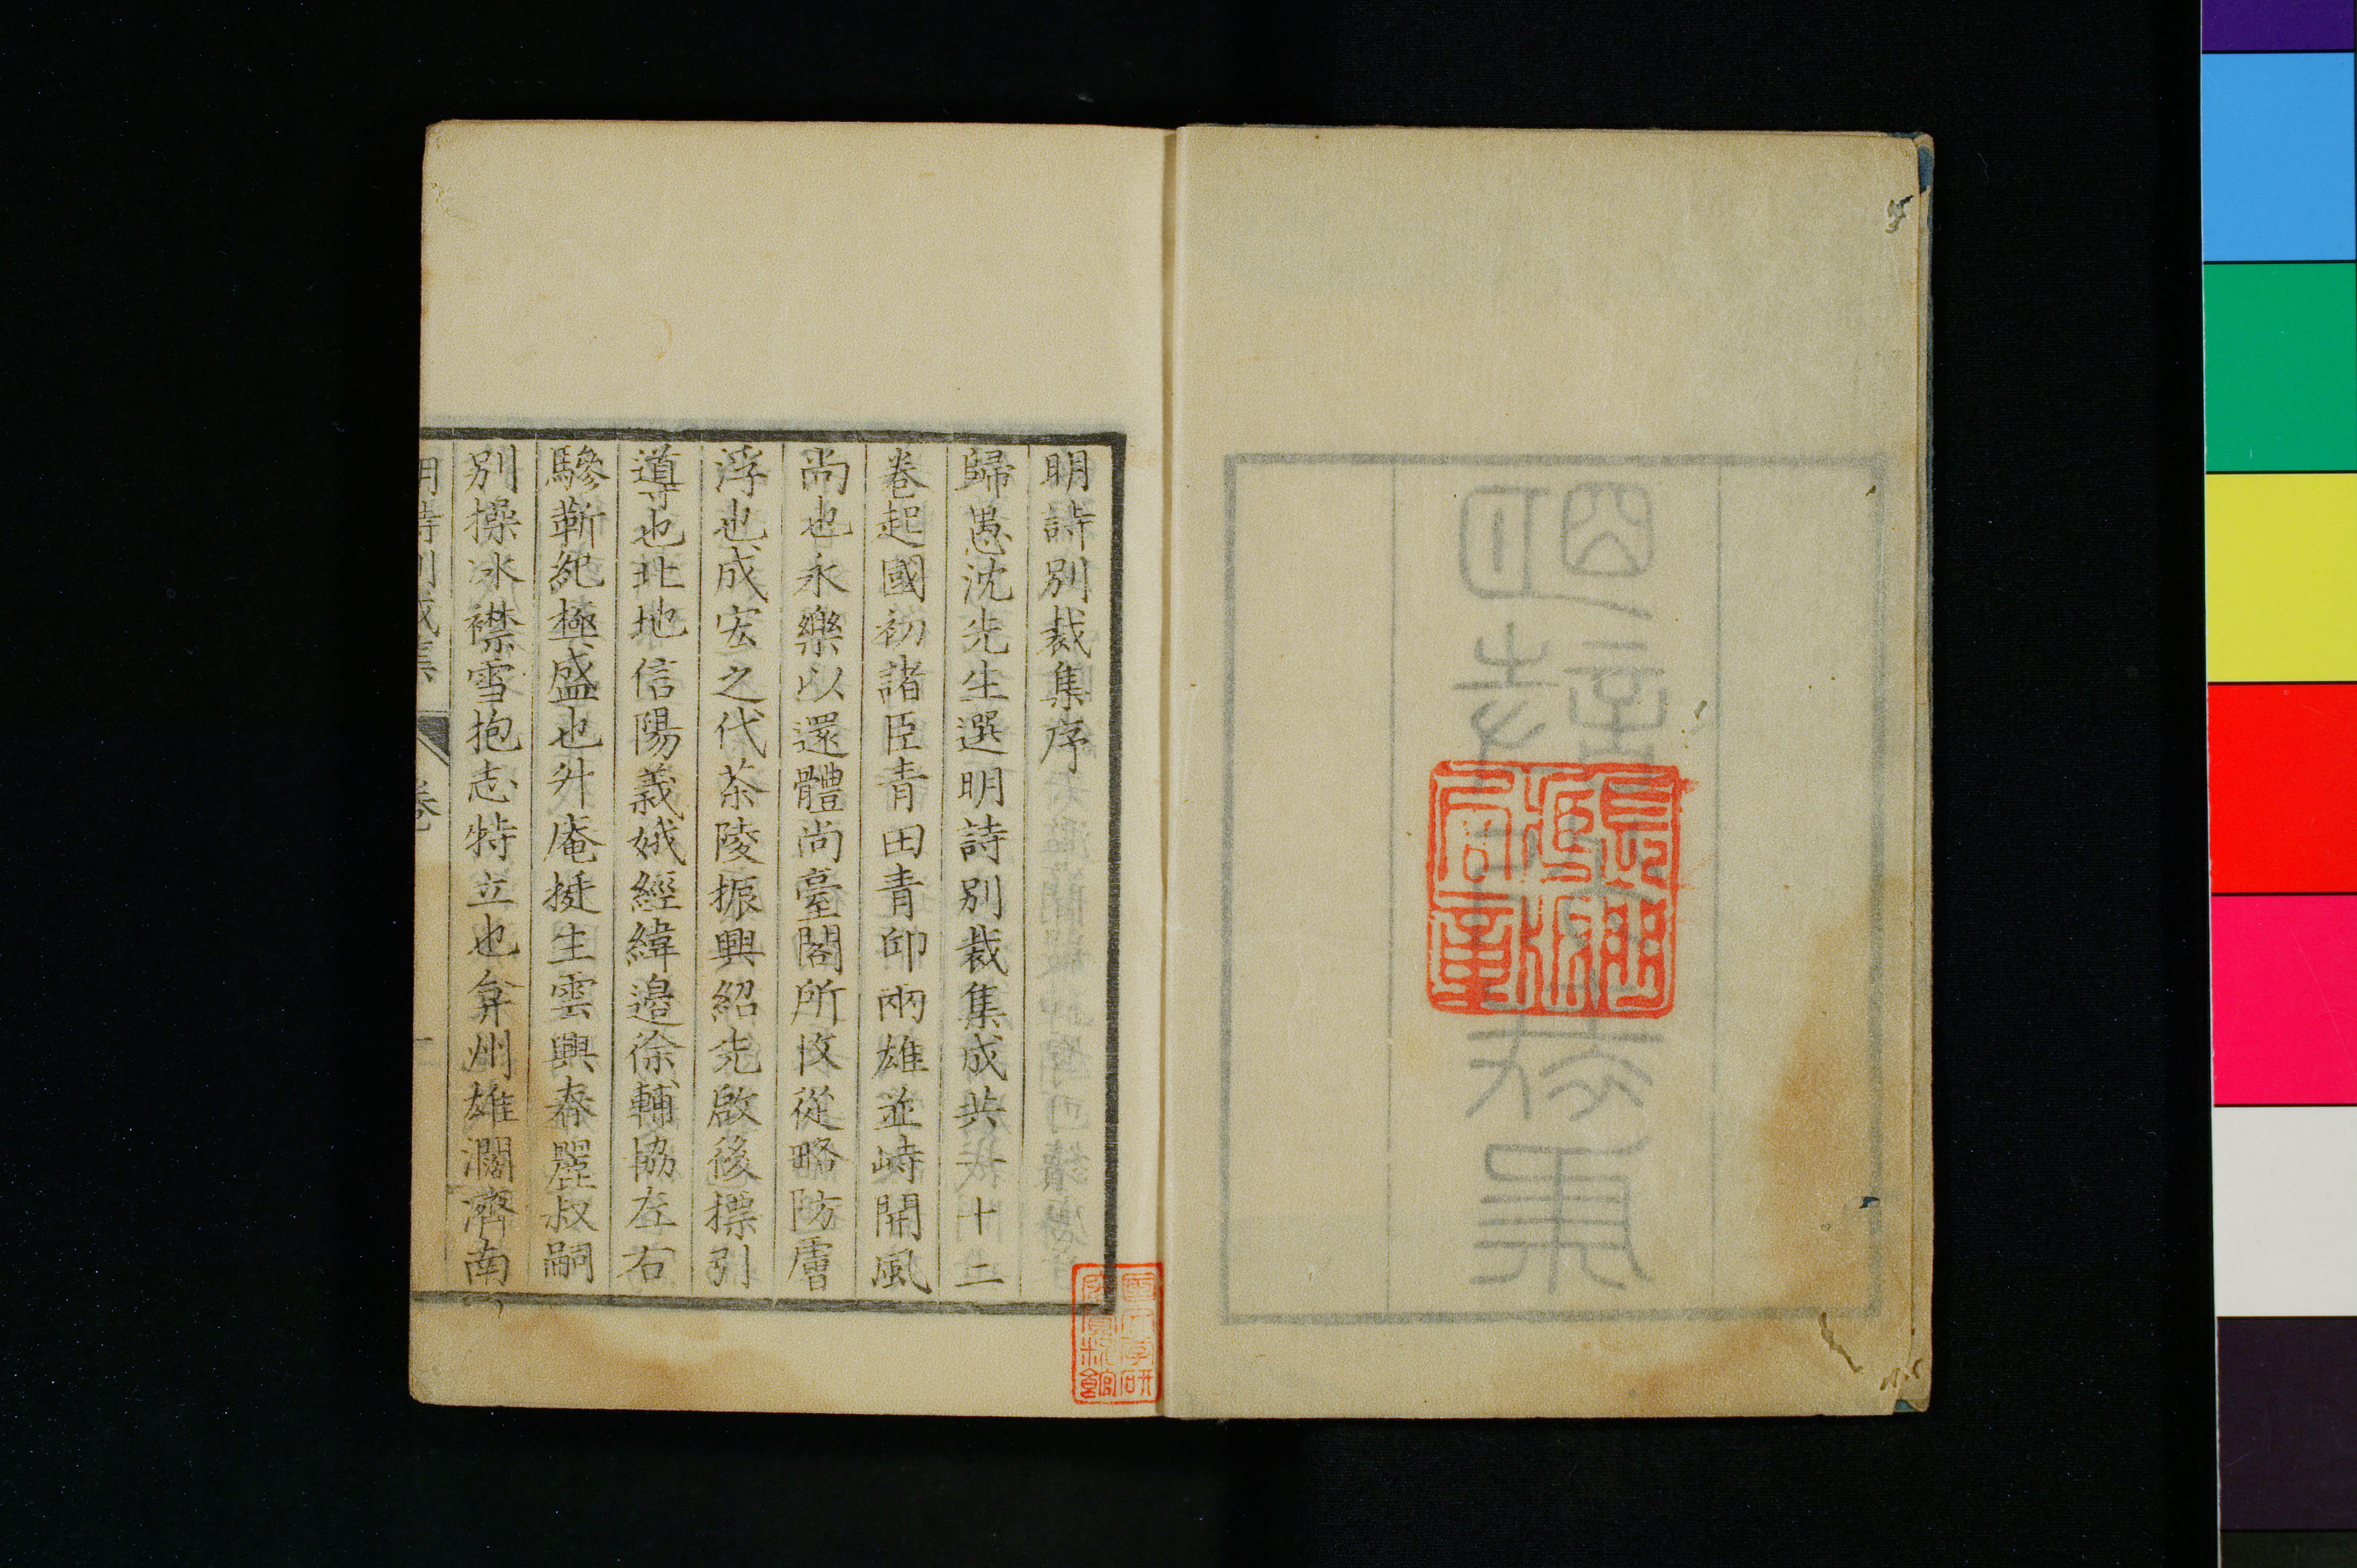 明詩別裁集序
歸愚沈先生選明詩別裁集成共一十二
卷起國初諸臣青田青邱兩雄並峙開風
尚也永樂以還體尚臺閣所收從略防膚
浮也成宏之代茶陵振興紹先啟後摽引
導也北地信陽義娥經緯邉徐輔協左右
驂靳紀極盛也升庵挺生雲興春麗叔嗣
別操冰襟雪抱志特立也弇州雄濶濟南
明詩別裁集 卷